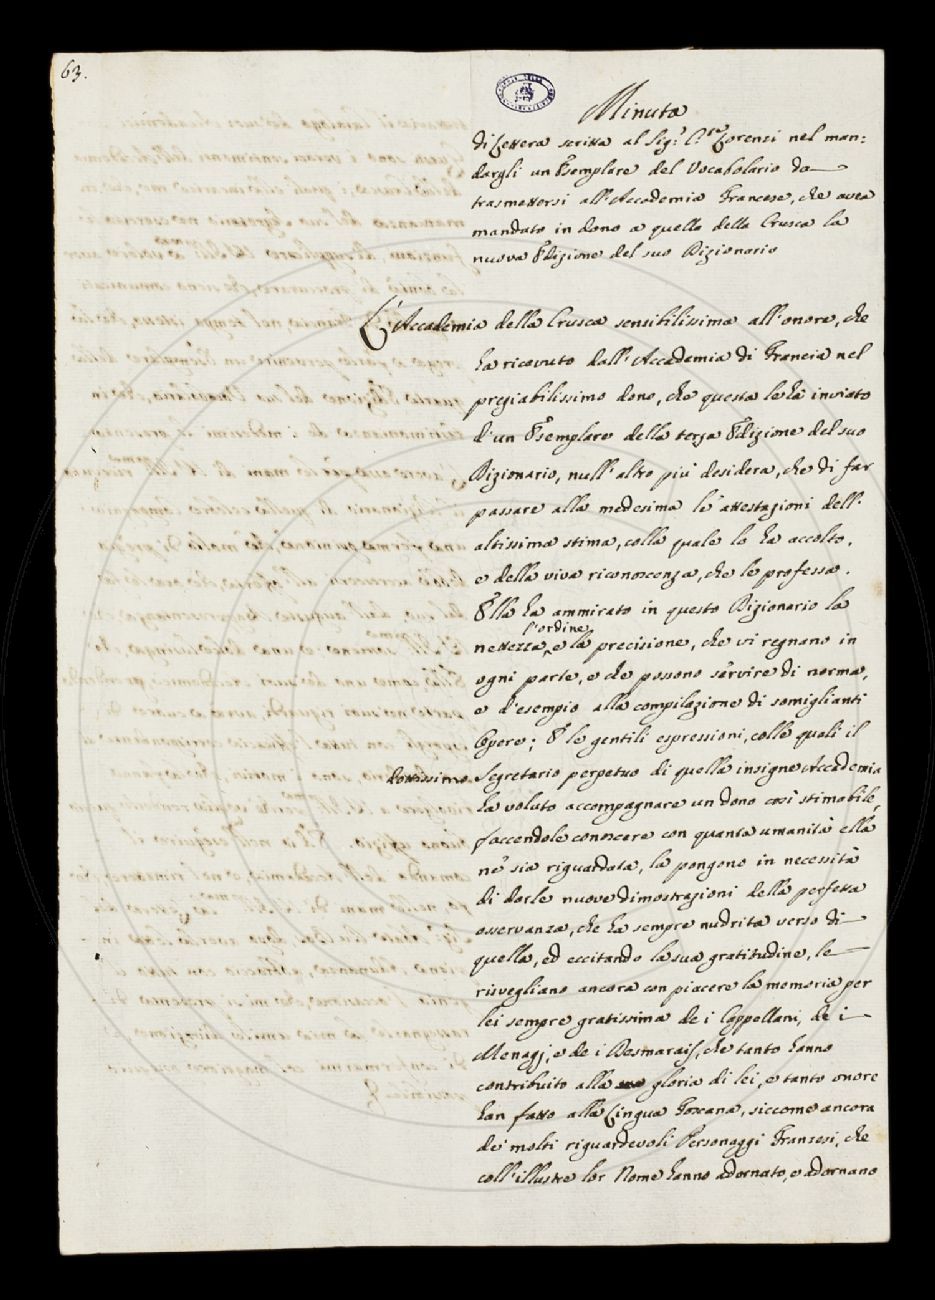 63.
Minuta
di Lettera scritta al Sig.r C.te Lorenzi nel man=
dargli un Esemplare del Vocabolario da
trasmettersi all'Accademia Francese, che avea
mandato in dono a quella della Crusca la
nuova Edizione del suo Dizionario
L'Accademia della Crusca sensibilissima all'onore, che
ha ricevuto dall'Accademia di Francia nel
pregiabilissimo dono, che questa le ha inviato
d'un Esemplare della terza Edizione del suo
Dizionario, null'altro più desidera, che di far
passare alla medesima le attestazioni dell'
altissima stima, colla quale lo ha accolto,
e della viva riconoscenza, che le professa.
Ella ha ammirato in questo Dizionario la
l'ordine
nettezza, e la precisione, che vi regnano in
ogni parte, e che possono servire di norma,
e d'esempio alla compilazione di somiglianti
Opere; E le gentili espressioni, colle quali il
dottissimo Segretario perpetuo di quella insigne Accademia
ha voluto accompagnare un dono così stimabile,
faccendole conoscere con quanta umanità ella
ne sia riguardata, la pongono in necessità
di darle nuove dimostrazioni della perfetta
osservanza, che ha sempre nudrita verso di
quella, ed eccitando la sua gratitudine, le
risvegliano ancora con piacere la memoria per
lei sempre gratissima de i Cappellani, de i
Menagj, e de i Desmarais, che tanto hanno
contribuito alla gloria di lei, e tanto onore
han fatto alla Lingua Toscana, siccome ancora
de' molti riguardevoli Personaggi Franzesi, che
coll'illustre lor Nome hanno adornato, e adornano